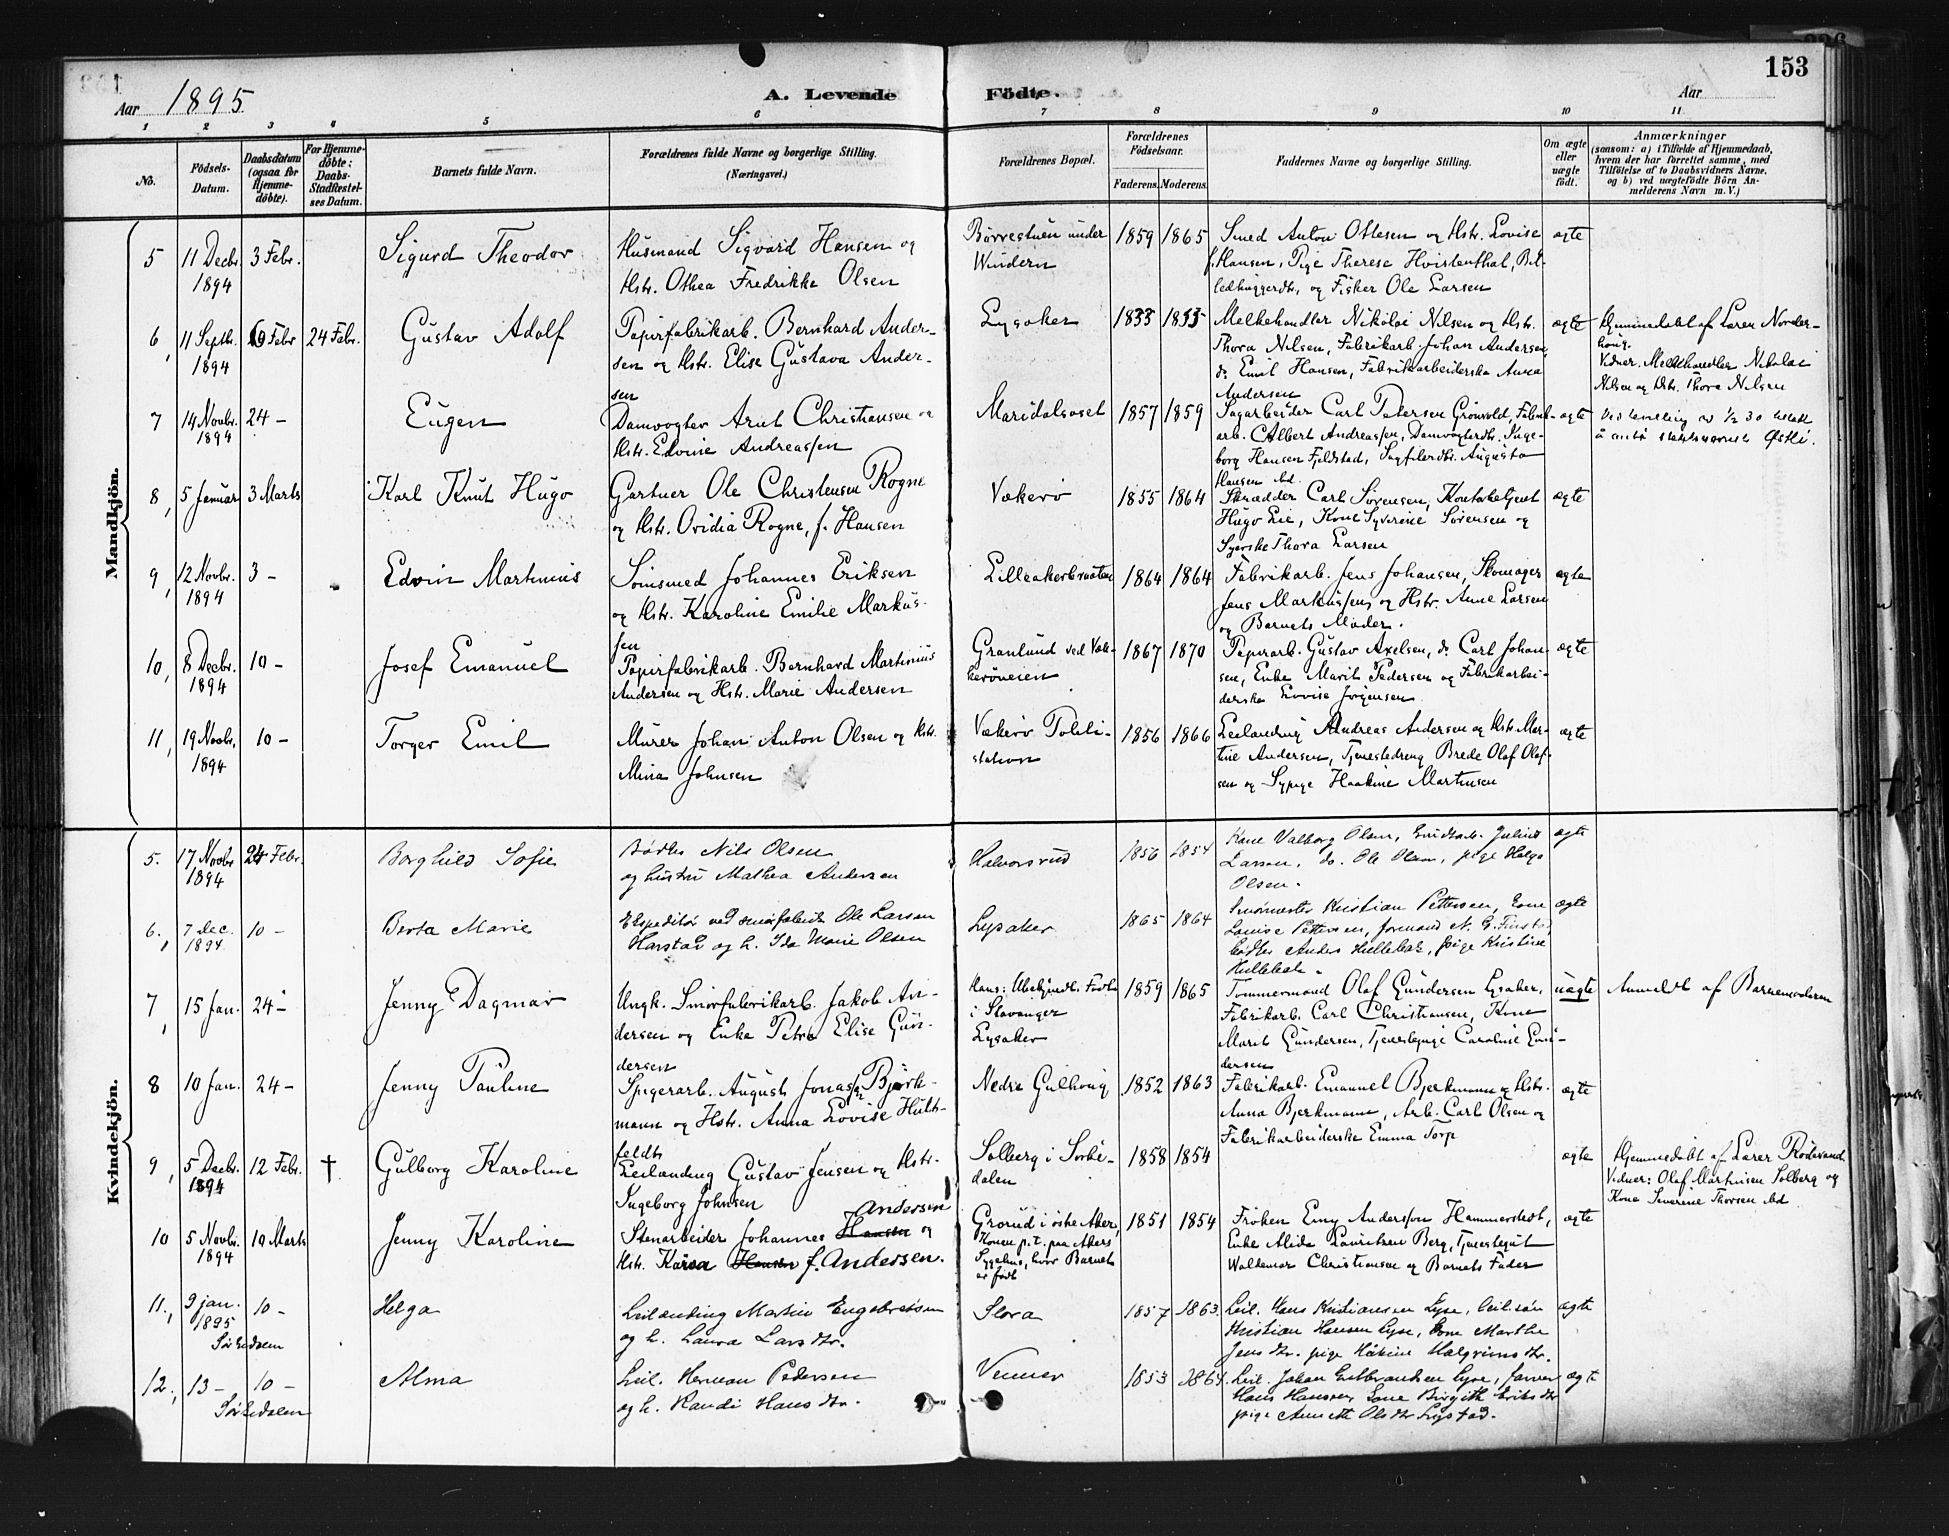 153
Aar 1895. A. Levende Fødte. Aar
1 2 3 4 5 6 7 8 9 10 11
No.
Födsels-Datum.
Daabsdatum (ogsaa for Hjemme-døbte).
For Hjemme-døbte: Daabs-Stadfæstel-ses Datum.
Barnets fulde Navn.
Forældrenes fulde Navne og borgerlige Stilling.
(Næringsvei.)
Forældrenes Bopæl.
Forældrenes Fødselsaar.
Faderens. Moderens.
Faddernes Navne og borgerlige Stilling.
Om ægte eller uægte født.
Anmærkninger
(saasom: a) i Tilfælde af Hjemmedaab,
hvem der har forrettet samme, med
Tilføielse af to Daabsvidners Navne,
og b) ved uægtefødte Börn An-
melderens Navn m. V.)
Mandkjön.
5 11 Decbr. 1894 3 Febr. Sigurd Theodor
Husmand Sigvard Hansen og
Hstr. Othea Fredrikke Olsen
Børrestuen under
Windern
1859 1865
Smed Anton Ottesen og Hstr. Lovise
f. Hansen, Pige Therese Hvistenthal, Bil-
ledhuggerdtr., og Fisker Ole Larsen
ægte
6, 11 Septb. 1894 10 Febr 24 Febr. Gustav Adolf
Papirfabrikarb. Bernhard Ander-
sen og Hstr. Elise Gustava Ander-
sen
Lysaker
1833 1855
Melkehandler Nikolai Nilsen og Hstr.
Thora Nilsen, Fabrikarb. Johan Andersen,
do Emil Hansen, Fabrikarbeiderske Anna
Andersen
ægte
Hjemmedøbt af Lærer Norder-
haug.
Vidner: Melkehandler Nikolai
Nilsen og Hstr. Thora Nilsen
7 14 Novbr. 1894 24 - Eugen
Damvogter Arnt Christiansen og
Hstr. Edvine Andreassen
Maridalsoset
1857 1859
Sagarbeider Carl Pedersen Grønvold, Fabrik-
arb. Albert Andreassen, Damvogterdtr. Inge-
borg Hansen Fjeldstad, Sagfilerdtr. Augusta
Hansen ibd.
ægte
8, 5 Januar 3 Marts Karl Knut Hugo
Gartner Ole Christensen Rogne
og Hstr. Ovidia Rogne, f. Hansen
Vækerø
1855 1864
Skrædder Carl Sørensen, Kontorbetjent
Hugo Lie, Kone Syverine Sørensen og
Syerske Thora Larsen
ægte
9, 12 Novbr. 1894 3 - Edvin Martinius
Sømsmed Johannes Eriksen
og Hstr. Karoline Emilie Markus-
sen
Lilleakerbraaten
1864 1864
Fabrikarb. Jens Johansen, Skomager
Jens Markussen og Hstr. Anne Larsen
og Barnets Moder.
ægte
10, 8 Decbr. 1894 10 - Josef Emanuel
Papirfabrikarb. Bernhard Martinius
Andersen og Hstr. Marie Andersen
Granlund ved Væk-
kerøveien
1867 1870
Papirarb. Gustav Axelsen, do Carl Johan-
sen, Enke Marit Pedersen og Fabrikarbei-
derske Lovise Jørgensen.
ægte
11, 19 Novbr. 1894 10 - Torger Emil
Murer Johan Anton Olsen og Hstr.
Mina Johnsen
Vækerø Toldi-
station
1856 1866
Leilænding Andreas Andersen og Hstr. Mar-
tine Andersen, Tjenestedreng Brede Olaf Olaf-
sen og Sypige Haakine Martinsen
ægte
Kvindekjön.
5. 17 Novbr 1894 24 Febr. Borghild Sofie
Bødker Nils Olsen
og hustru Mathea Andersen
Halvorsrud
1856 1854
Kone Valborg Olsen, Julius
Larsen, do. Ole Olsen, pige Helga
Olsen.
ægte
6., 7 Dec. 1894. 10 - Berta Marie
Ekspeditør ved smørfabrik Ole Larsen
Harstad og h. Ida Marie Olsen
Lysaker
1865 1864
Smørmester Kristian Pettersen, Kone
Louise Pettersen, formand N. G. Finstad
bødker Anders Hullebak, pige Kristine
Hullebak.
ægte
7, 15 Jan. 24 - Jenny Dagmar
Ungk. Smørfabrikarb. Jakob An-
dersen og Enke Petra Elise Gun-
dersen
Hans: Ubekjendt. Født
i Stavanger
Lysaker
1859 1865
Tømmermand Olaf Gundersen Lysaker,
Fabrikarb. Carl Christiansen, Kone
Marit Gundersen, Tjenestepige Caroline Gun-
dersen
uægte
Anmeldt af Barnemoderen
8 10 Jan. 24 - Jenny Pauline
Spigerarb. August Jonassen Bjørk-
mann og Hstr. Anna Lovise Hult-
feldt
Nedre Gulhaug
1852 1863
Fabrikarb. Emanuel Bjerkmann og Hstr.
Anna Bjerkmann, Arb. Carl Olsen og
Fabrikarbeiderske Emma Torp
ægte
9, 5 Decbr. 1894 12 Febr. † Gulborg Karoline
Leilænding Gustav Jensen og Hstr.
Ingeborg Johnsen
Solberg i Sørke-
dalen
1858 1854
ægte
Hjemmedøbt af Lærer Rødsrand
Vidner: Olaf Martinsen Solberg og
Kone Severine Thorsen ibd
10 5 Novbr. 1894 10 Marts Jenny Karoline
Andersen
Stenarbeider Johannes Hansen og
Hstr. Karen Hansen f. Andersen.
Grorud i østre Aker,
Konen p.t. paa Akers
Sygehus, hvor Barnet
er født
1851 1854
Frøken Emy Andersson Hammerstedt,
Enke Alida Lauritzen Berg, Tjenestegut
Waldemar Christiansen og Barnets Fader
ægte
11., 9 jan. 1895 10 - Helga
Sørkedalen
Leilænding Martin Engebretsen
og h. Laura Larsdtr.
Slora
1857 1863
Leil. Hans Kristiansen Lyse, leil.søn
Kristian Hansen Lyse, Kone Marthe
Jensdtr. pige Håkine Halgrimsdtr.
ægte
12., 13 - 10 - Alma
Sørkedalen
Leil. Herman Pedersen
og h. Randi Hansdtr.
Venner
1853 1864.
Leil. Johan Gulbrandsen Lyse, farver
Hans Hansen, Kone Birgith Eriksdtr
pige Annette Olsdtr Lystad.
ægte